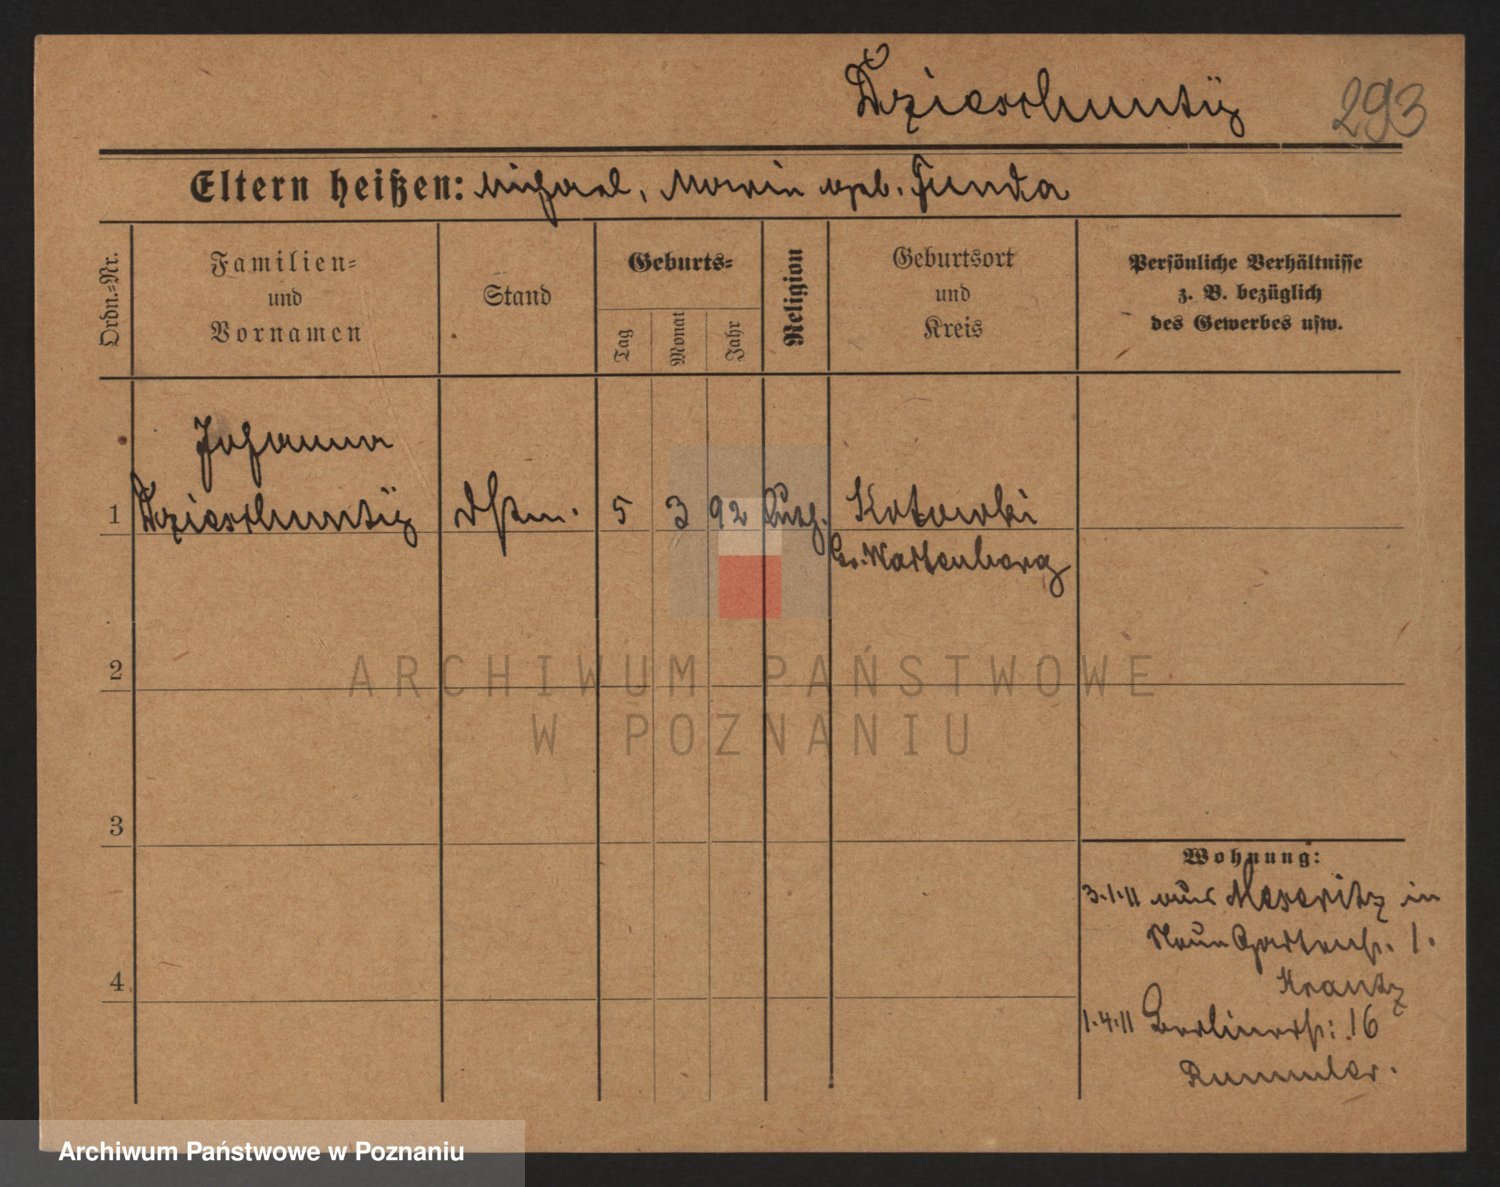 293
Eltern heißen: Michael, Marie geb. Funda
Ordn.-Nr.
Familien-
und
Vornamen
Stand
Geburts-
Tag
Monat
Jahr
Religion
Geburtsort
und
Kreis
Persönliche Verhältnisse
z. B. bezüglich
des Gewerbes usw.
Johanna
1 5 3 92 Kotowski
Gr. Wartenberg
2
3
4
Wohnung:
3.1.11 aus Meseritz in
Neue Gartenstr. 1.
Krantz
1.4.11 Berlinerstr: 16
Rummler.
ARCHIWUM PAŃSTWOWE
W POZNANIU
Archiwum Państwowe w Poznaniu